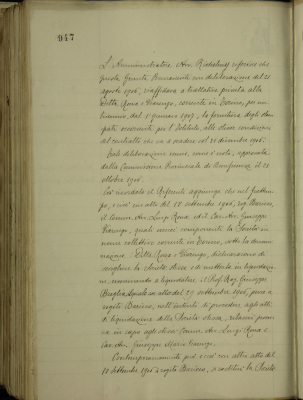 947
L'Amministratore Avv. Richelmy riferisce che
questa Giunta Permanente con deliberazione del 21
agosto 1906, riaffidava a trattativa privata alla
Ditta Roux e Viarengo, corrente in Torino, per un
biennio, dal 1° gennaio 1907, la fornitura degli stam-
pati occorrenti per l'Istituto, alle stesse condizioni
del contratto che va a scadere col 31 dicembre 1906.
Tale deliberazione venne, come è noto, approvata
dalla Commissione Provinciale di Beneficenza il 11
ottobre 1906.
Ciò ricordato il Riferente aggiunge che nel frattem-
po, e cioè con atto del 10 settembre 1906, rog.
il Comm. Avv. Luigi Roux ed il Cav. Avv. Giuseppe
Viarengo, quali unici componenti la Società in
nome collettivo corrente in Torino, sotto la denomi-
nazione: Ditta Roux e Viarengo, dichiararono di
sciogliere la Società stessa e di metterla in liquidazio-
ne, nominando a liquidatore il Prof. Rag. Giuseppe
con atto del 27 settembre 1906, pure a
rogito nell'intento di procedere agli atti
di liquidazione della Società stessa,
in capo agli stessi Comm. Avv. Luigi Roux e
Cav. Avv. Giuseppe Viarengo.
Contemporaneamente poi, e cioè con altro atto del
10 settembre 1906 a rogito si costituì la Società